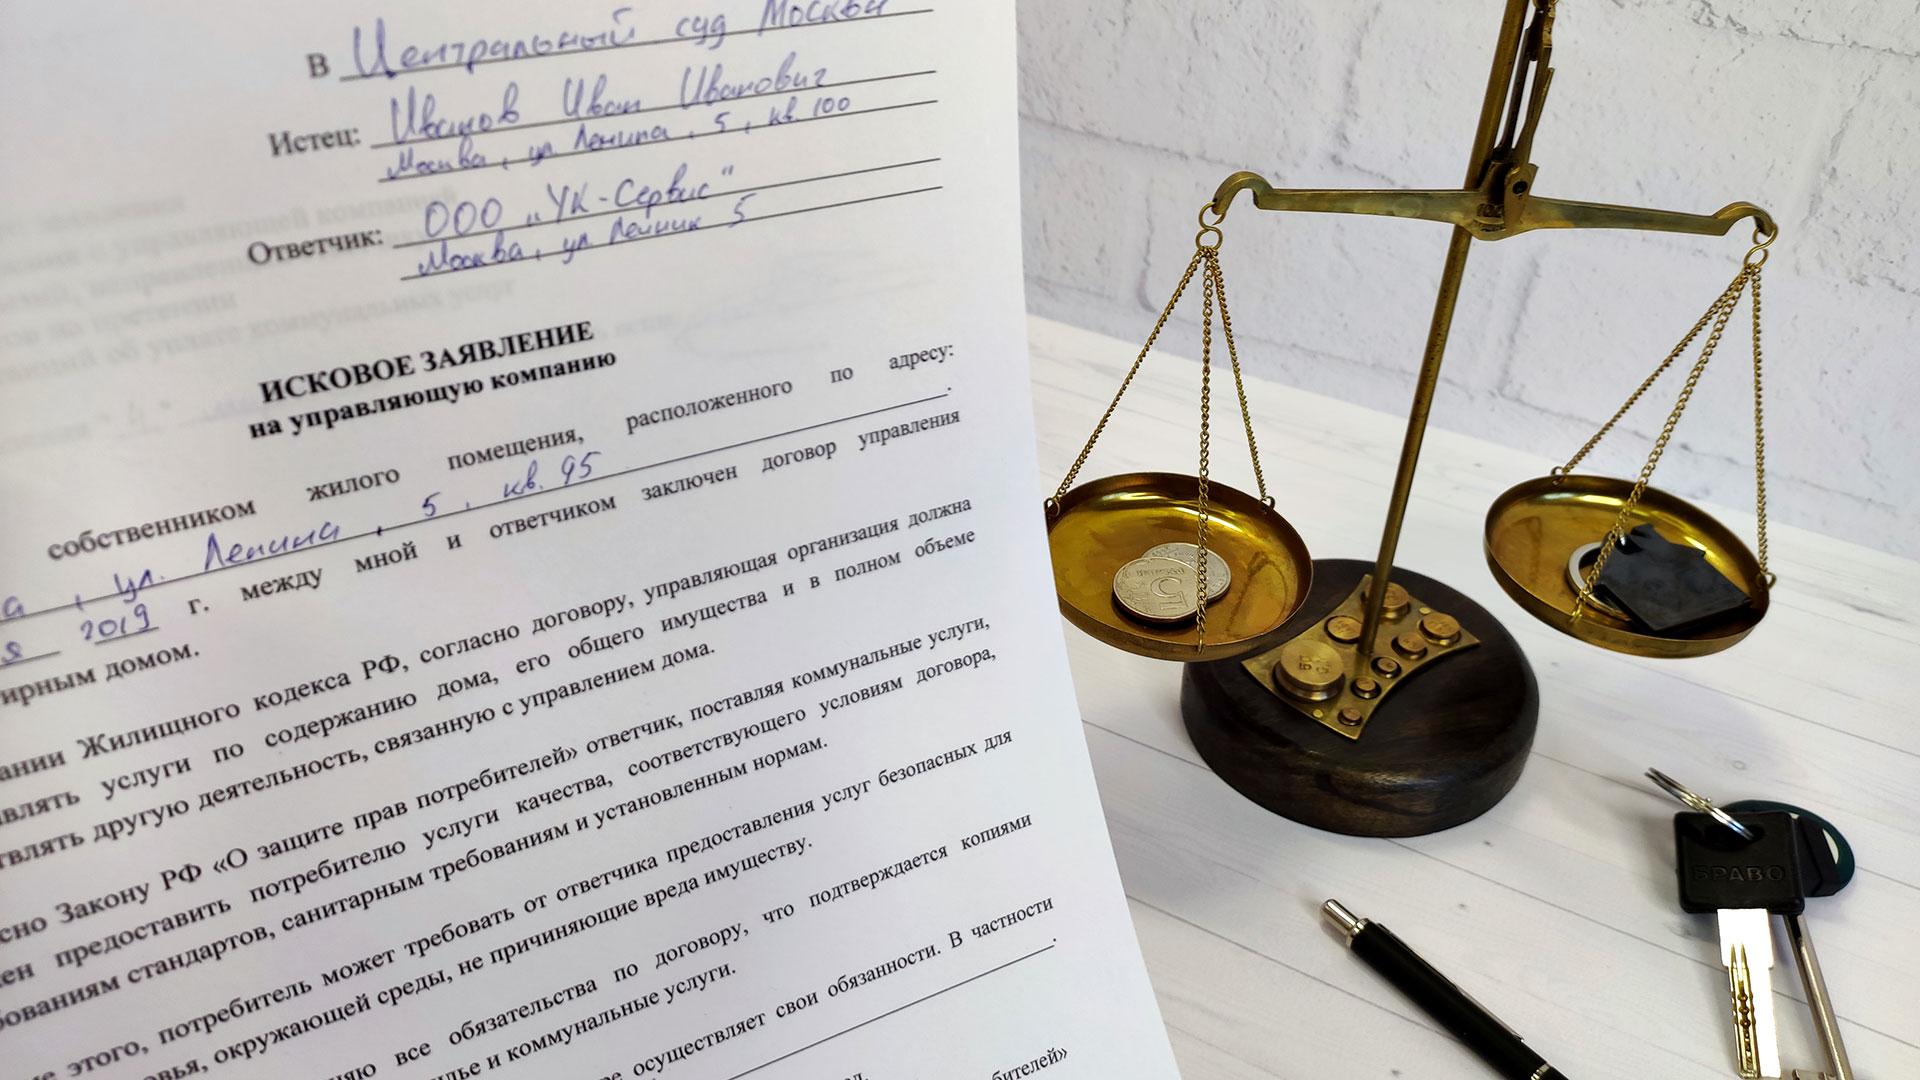 В Центральный суд Москвы
Истец: Иванов Иван Иванович
Москва, ул Ленина, 5, кв. 100
Ответчик: ООО „УК-Сервис"
Москва, ул Ленина 5
ИСКОВОЕ ЗАЯВЛЕНИЕ
на управляющую компанию
собственником жилого помещения, расположенного по адресу:
а, ул. Ленина, 5, кв. 95.
я 2019 г. между мной и ответчиком заключен договор управления
ирным домом.
ании Жилищного кодекса РФ, согласно договору, управляющая организация должна
влять услуги по содержанию дома, его общего имущества и в полном объеме
твлять другую деятельность, связанную с управлением дома.
сно Закону РФ «О защите прав потребителей» ответчик, поставляя коммунальные услуги,
ен предоставить потребителю услуги качества, соответствующего условиям договора,
бованиям стандартов, санитарным требованиям и установленным нормам.
ме этого, потребитель может требовать от ответчика предоставления услуг безопасных для
овья, окружающей среды, не причиняющие вреда имуществу.
няю все обязательства по договору, что подтверждается копиями
лье и коммунальные услуги.
ре осуществляет свои обязанности. В частности
бителей»
5
БРАВО